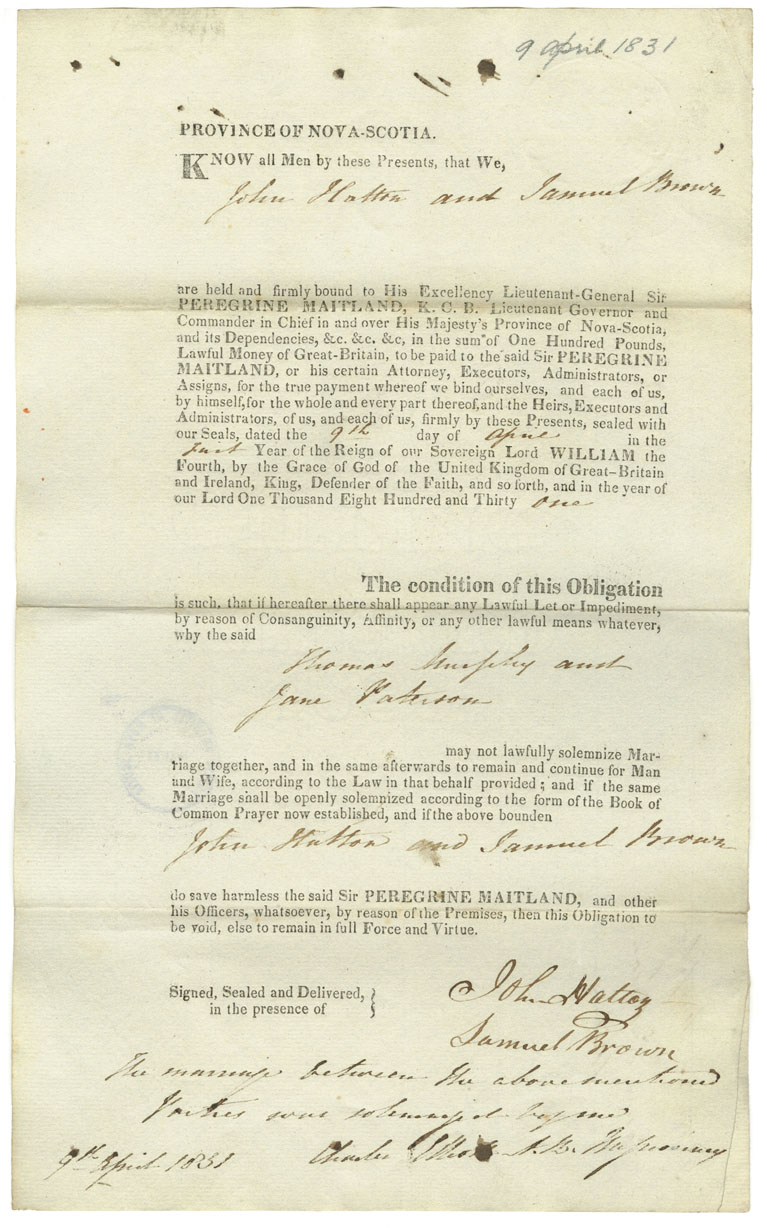 9 April 1831
PROVINCE OF NOVA-SCOTIA.
KNOW all Men by these Presents, that We,
John Hatton and Samuel Brown
are held and firmly bound to His Excellency Lieutenant-General Sir
PEREGRINE MAITLAND, K. C. B. Lieutenant Governor and
Commander in Chief in and over His Majesty's Province of Nova-Scotia,
and its Dependencies, &c. &c. &c, in the sum of One Hundred Pounds,
Lawful Money of Great-Britain, to be paid to the said Sir PEREGRINE
MAITLAND, or his certain Attorney, Executors, Administrators, or
Assigns, for the true payment whereof we bind ourselves, and each of us,
by himself, for the whole and every part thereof, and the Heirs, Executors and
Administrators, of us, and each of us, firmly by these Presents, sealed with
our Seals, dated the 9th day of April in the
first Year of the Reign of our Sovereign Lord WILLIAM the
Fourth, by the Grace of God of the United Kingdom of Great-Britain
and Ireland, King, Defender of the Faith, and so forth, and in the year of
our Lord One Thousand Eight Hundred and Thirty one
The condition of this Obligation
is such, that if hereafter there shall appear any Lawful Let or Impediment,
by reason of Consanguinity, Affinity, or any other lawful means whatever,
why the said
Thomas Murphy and
Jane Patterson
may not lawfully solemnize Mar-
riage together, and in the same afterwards to remain and continue for Man
and Wife, according to the Law in that behalf provided; and if the same
Marriage shall be openly solemnized according to the form of the Book of
Common Prayer now established, and if the above bounden
John Hatton and Samuel Brown
do save harmless the said Sir PEREGRINE MAITLAND, and other
his Officers, whatsoever, by reason of the Premises, then this Obligation to
be void, else to remain in full Force and Virtue.
Signed, Sealed and Delivered,
in the presence of
John Hatton
Samuel Brown
The marriage between the above mentioned
Parties was solemnized by me
9th April 1831 Charles